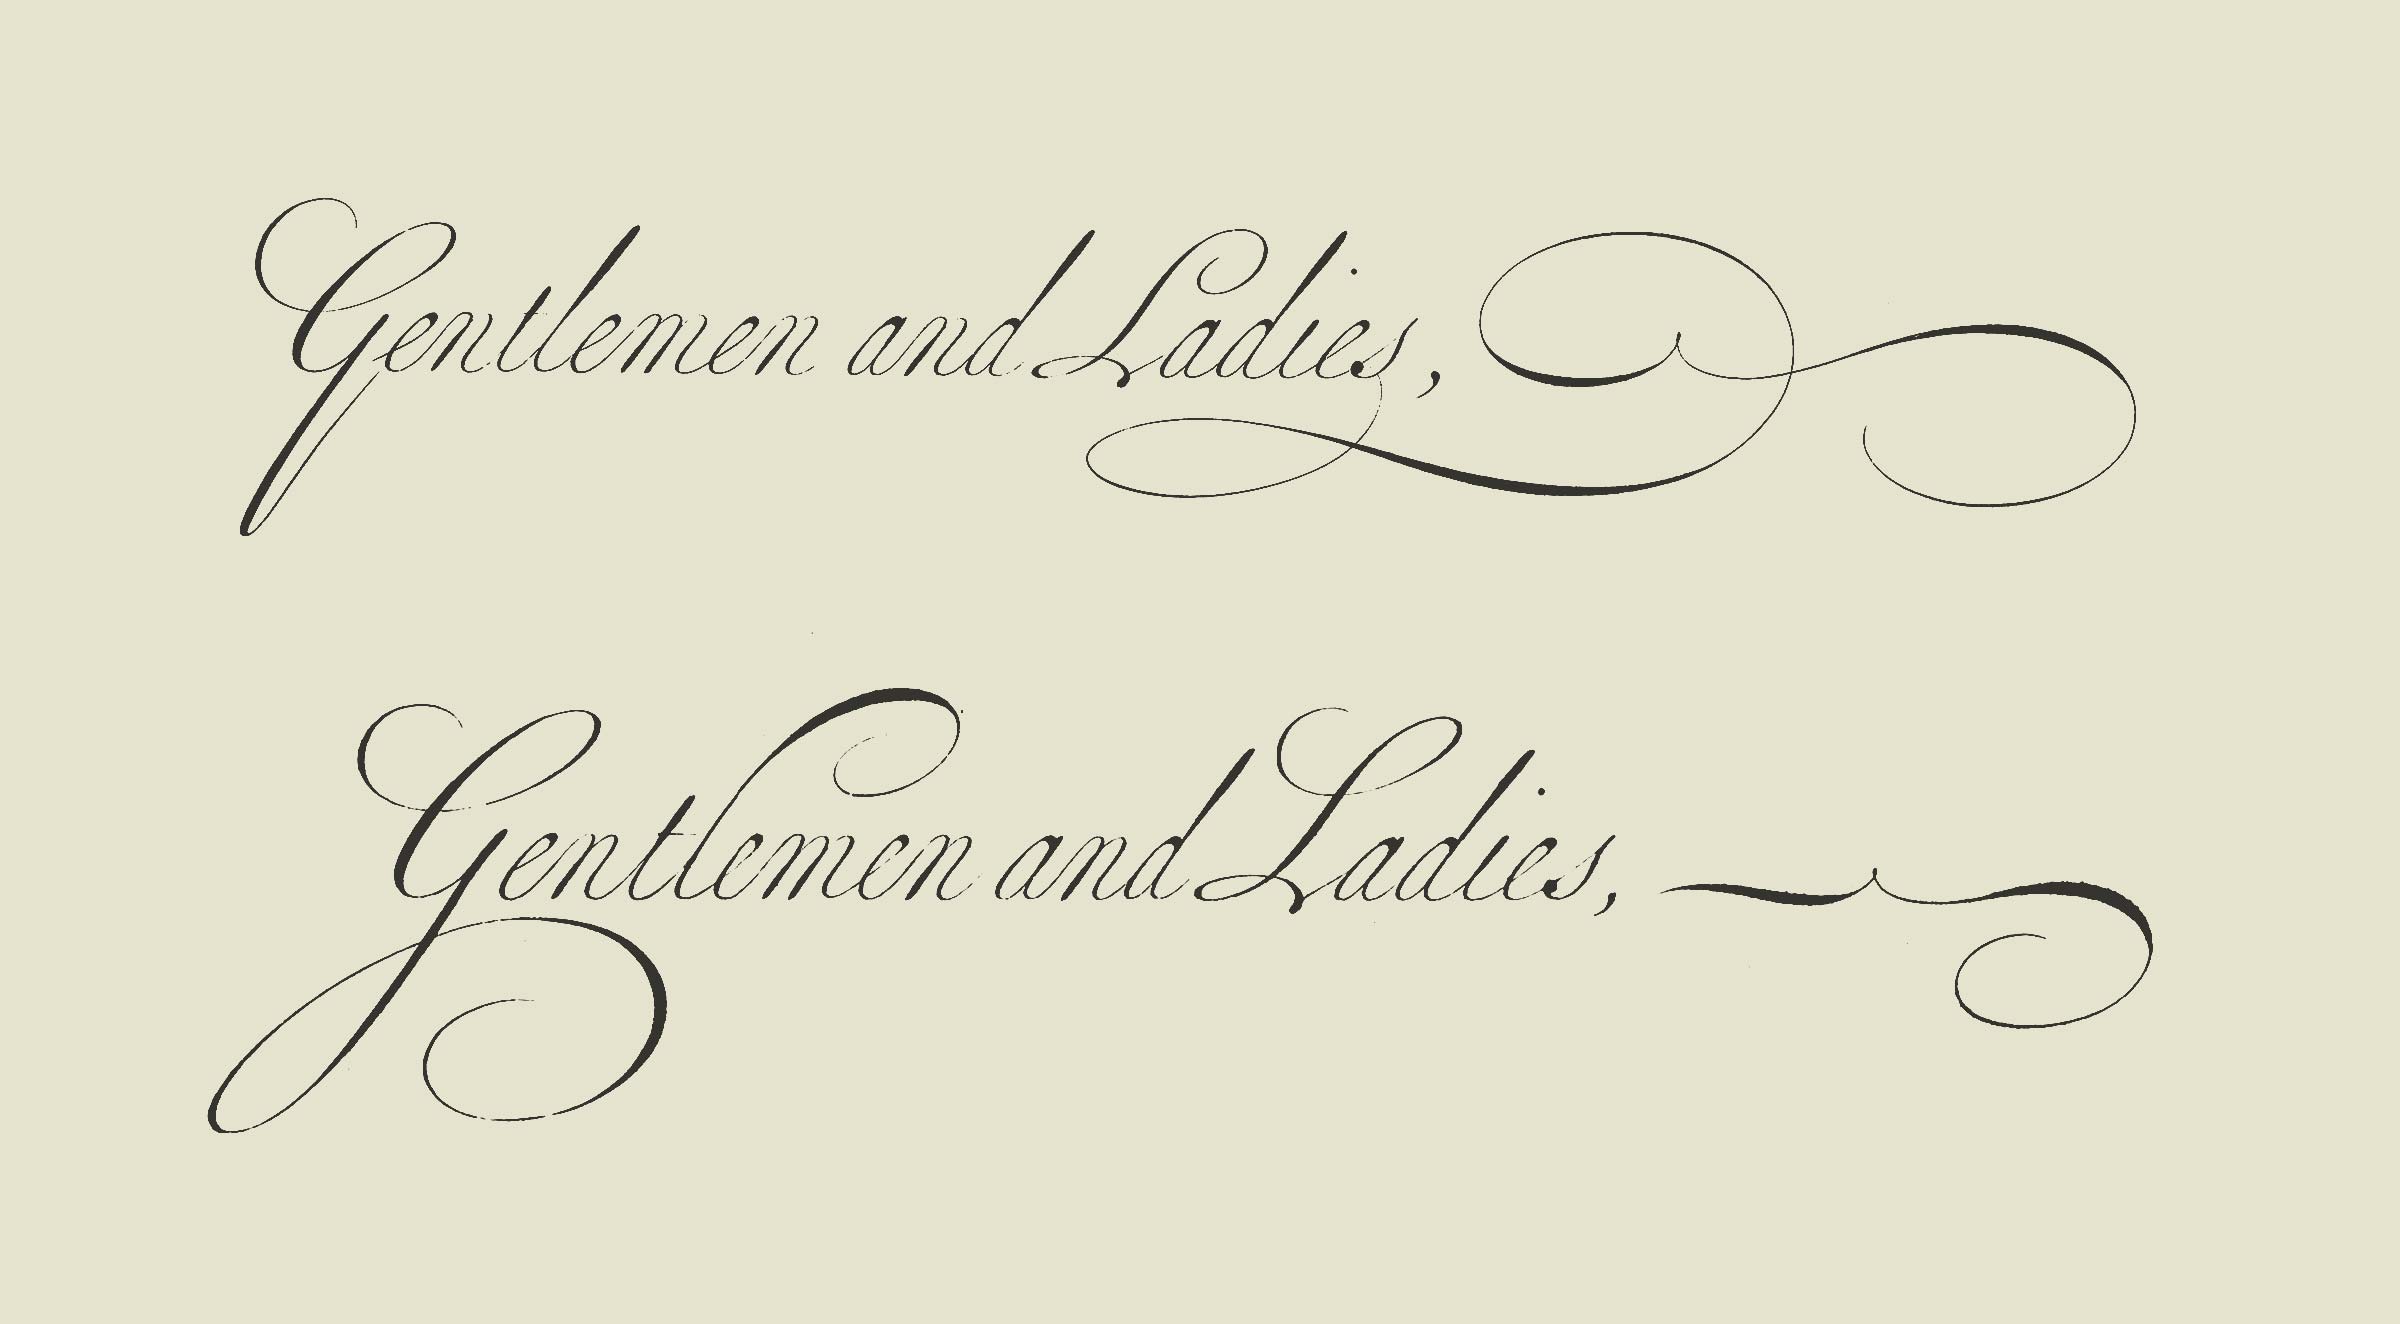 Gentlemen and Ladies,
Gentlemen and Ladies,